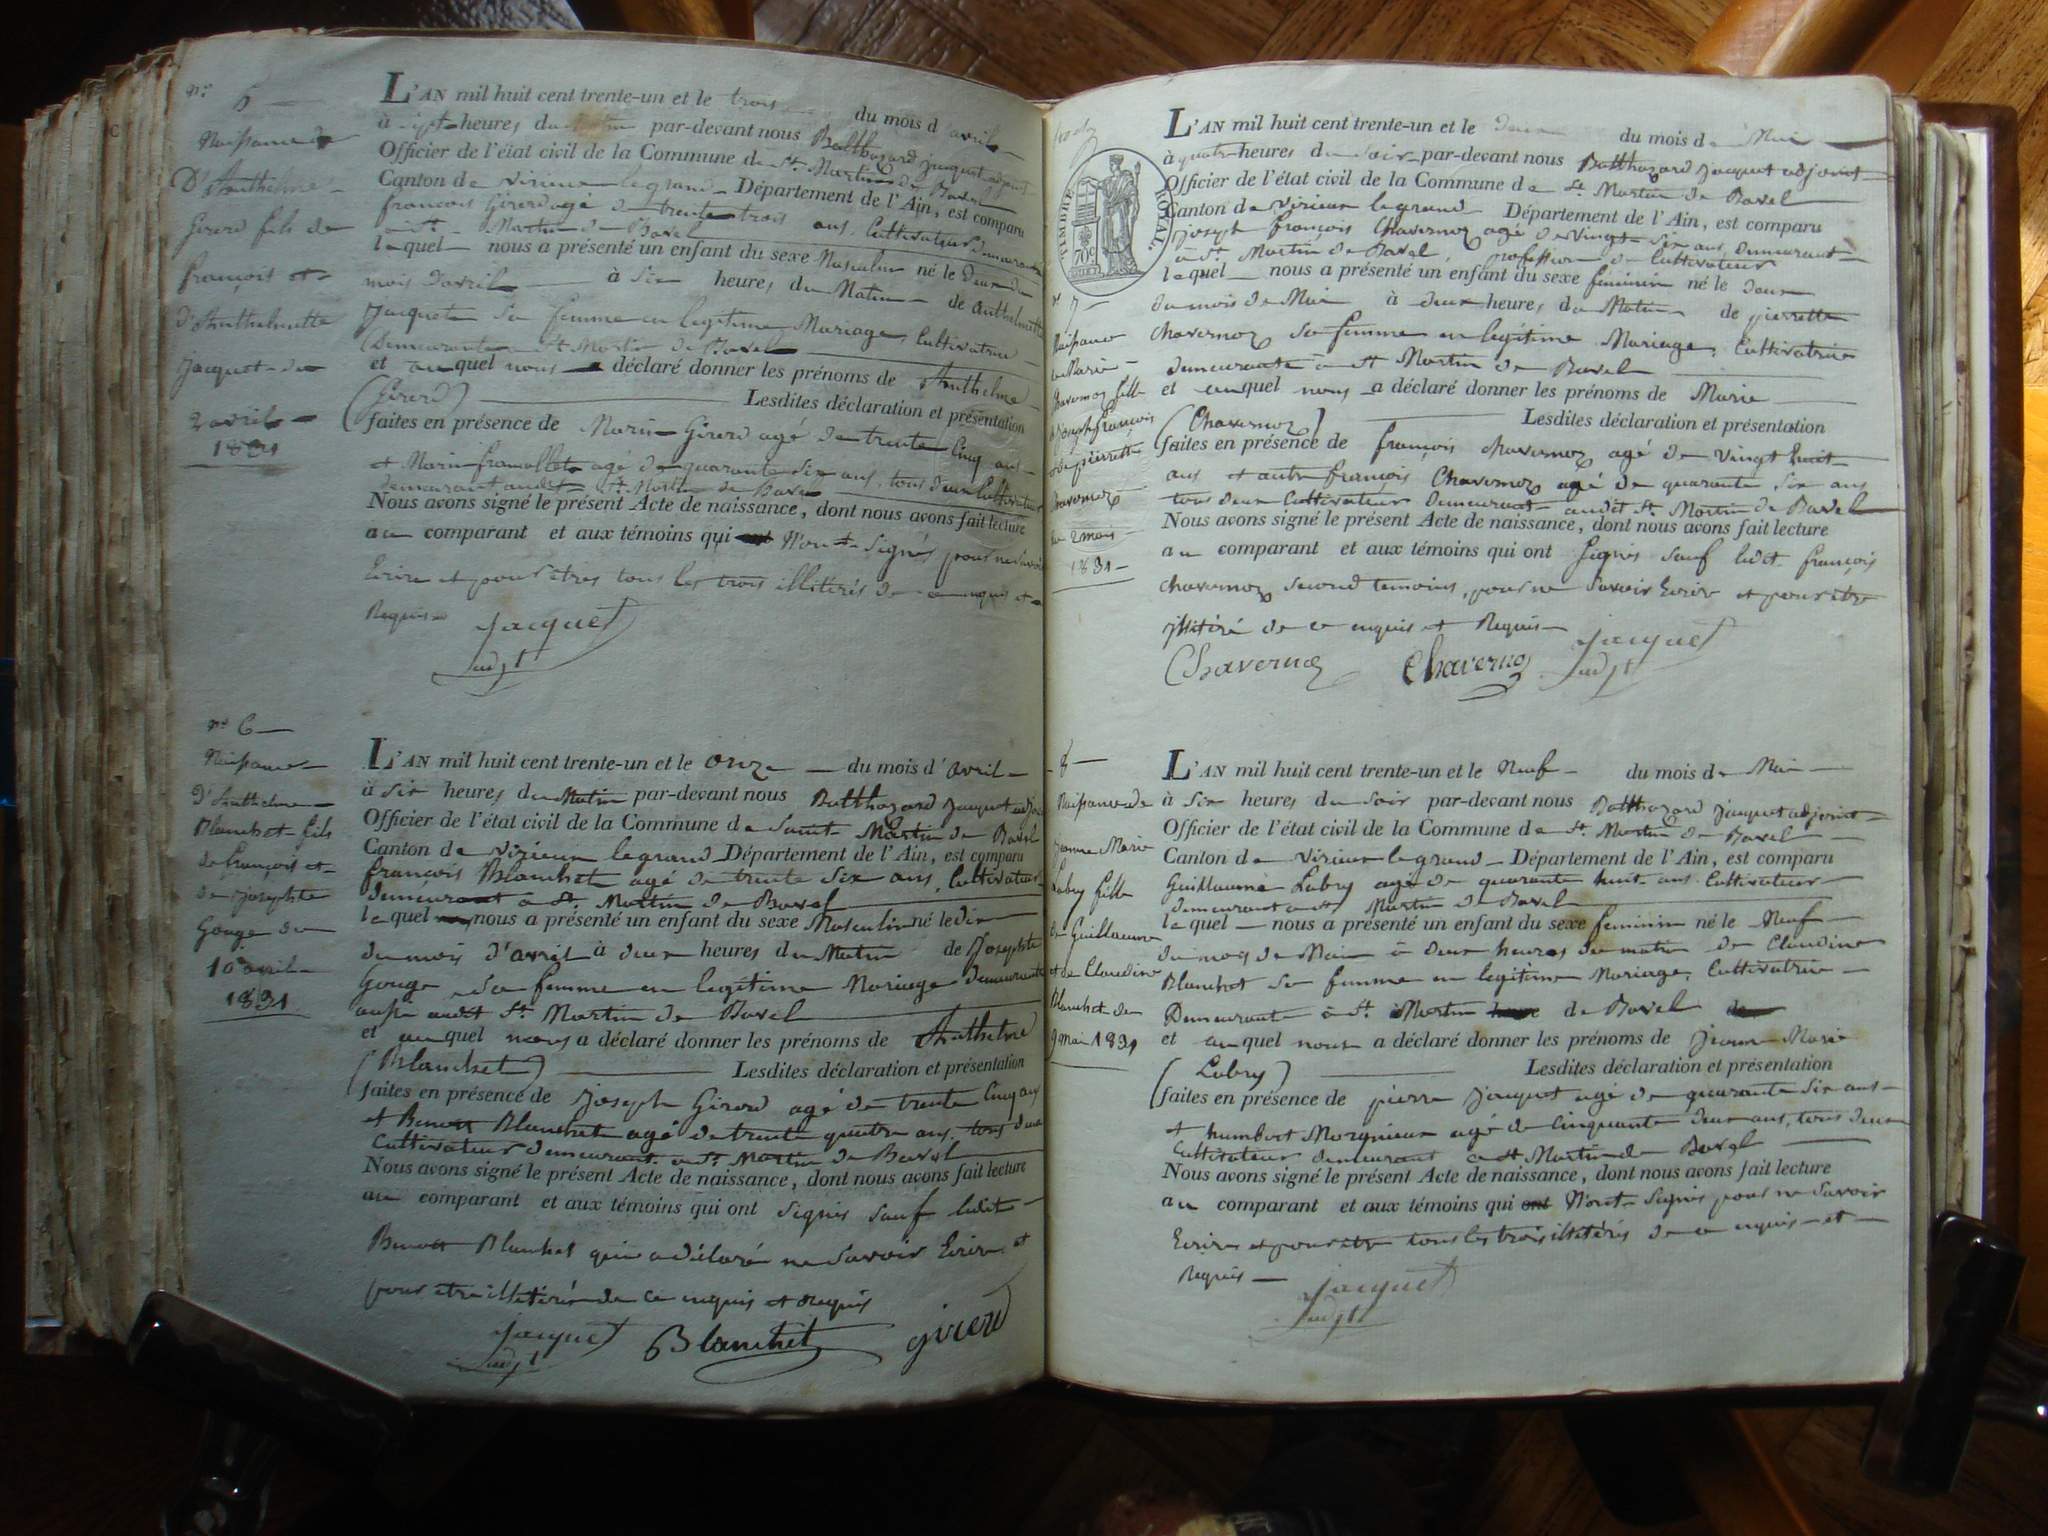 n.° 5
Naissance de
D'Anthelme
Girerd fils de
françois et
d'Anthelmette
Jacquet du
2 avril
1831
L'AN mil huit cent trente-un et le trois du mois d avril
à sept heures du matin par-devant nous Balthazard Jacquet adjoint
Officier de l'état civil de la Commune de St. Martin de Bavel
Canton de virieux le grand Département de l'Ain, est comparu
françois Girerd agé de trente trois ans, Cultivateur demeurant
à St. Martin de Bavel
lequel nous a présenté un enfant du sexe Masculin né le Deux du
mois d'avril à six heures du Matin de Anthelmette
Jacquet sa femme en legitime Mariage, Cultivatrice
Demeurante à St Martin de Bavel
et auquel nous a déclaré donner les prénoms de Anthelme
(Girerd) Lesdites déclaration et présentation
faites en présence de Marin Girerd agé de trente Cinq ans
et Marin framollet agé de quarante six ans, tous deux Cultivateur
demeurant audit St. Martin de Bavel
Nous avons signé le présent Acte de naissance, dont nous avons fait lecture
au comparant et aux témoins qui ont N'ont signés pour ne savoir
Ecrire et pour êtres tous les trois illitérés de ce enquis et
Requis
Jacquet
adjt
n.° 6
Naissance
D'Anthelme
Blanchet fils
de françois et
de Josephte
Gouge du
10 avril
1831
L'AN mil huit cent trente-un et le onze du mois d'avril
à six heures du Matin par-devant nous Balthazard Jacquet adjoint
Officier de l'état civil de la Commune de Saint Martin de Bavel
Canton de virieux le grand Département de l'Ain, est comparu
françois Blanchet agé de trente six ans, Cultivateur
demeurant à St. Martin de Bavel
lequel nous a présenté un enfant du sexe Masculin né le dix
du mois d'avril à deux heures du Matin de Josephte
Gouge sa femme en legitime Mariage demeurante
aussi audit St. Martin de Bavel
et auquel nous a déclaré donner les prénoms de Anthelme
(Blanchet) Lesdites déclaration et présentation
faites en présence de Joseph Girerd agé de trente Cinq ans
et Benoit Blanchet agé de trente quatre ans, tous deux
Cultivateur demeurant à St. Martin de Bavel
Nous avons signé le présent Acte de naissance, dont nous avons fait lecture
au comparant et aux témoins qui ont signés sauf ledit
Benoit Blanchet qui a déclaré ne savoir Ecrire et
pour etre illitérés de ce enquis et Requis
Jacquet Blanchet girerd
adjt
TIMBRE ROYAL
70c
n° 7
Naissance
de Marie
Chavernoz fille
de Joseph françois
et de pierrette
Chavernoz
du 2 mai
1831
L'AN mil huit cent trente-un et le Deux du mois de Mai
à quatre heures du soir par-devant nous Balthazard Jacquet adjoint
Officier de l'état civil de la Commune de St. Martin de Bavel
Canton de virieux le grand Département de l'Ain, est comparu
Joseph françois Chavernoz agé de vingt six ans, demeurant
à St. Martin de Bavel, profession de Cultivateur
lequel nous a présenté un enfant du sexe féminin né le deux
du mois de Mai à deux heures du Matin de pierrette
Chavernoz sa femme en legitime Mariage, Cultivatrice
demeurante à St Martin de Bavel
et auquel nous a déclaré donner les prénoms de Marie
(Chavernoz) Lesdites déclaration et présentation
faites en présence de françois chavernoz agé de vingt huit
ans et autre françois Chavernoz agé de quarante six ans
tous deux Cultivateur demeurant audit St. Martin de Bavel
Nous avons signé le présent Acte de naissance, dont nous avons fait lecture
au comparant et aux témoins qui ont signés sauf ledit françois
chavernoz second temoins, pour ne savoir Ecrire et pour être
illitéré de ce enquis et Requis
Chavernoz Chavernoz Jacquet
adjt
8
Naissance de
Jeanne Marie
Labry fille
de Guillaume
et de Claudine
Blanchet du
9 mai 1831
L'AN mil huit cent trente-un et le Neuf du mois de Mai
à six heures du soir par-devant nous Balthazard Jacquet adjoint
Officier de l'état civil de la Commune de St. Martin de Bavel
Canton de virieux le grand Département de l'Ain, est comparu
Guillaume Labry agé de quarante huit ans Cultivateur
demeurant à St Martin de Bavel
lequel nous a présenté un enfant du sexe feminin né le Neuf
du mois de Mai à deux heures du matin de Claudine
Blanchet sa femme en legitime Mariage, Cultivatrice
Demeurante à St. Martin de Bavel
et auquel nous a déclaré donner les prénoms de Jeanne Marie
(Labry) Lesdites déclaration et présentation
faites en présence de pierre Jacquet agé de quarante six ans
et humbert Morgnieux agé de Cinquante deux ans, tous deux
Cultivateur demeurant à St Martin de Bavel
Nous avons signé le présent Acte de naissance, dont nous avons fait lecture
au comparant et aux témoins qui ont N'ont signés pour ne savoir
Ecrire et pour etre tous les trois illitérés de ce enquis et
Requis
Jacquet
adjt